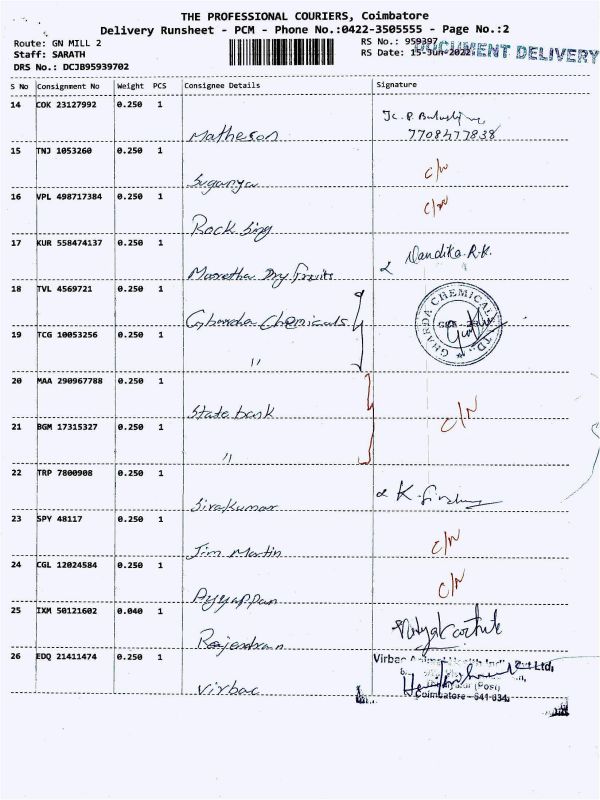 THE PROFESSIONAL COURIERS, Coimbatore
Delivery Runsheet - PCM - Phone No.:0422-3505555 - Page No.:2
Route: GN MILL 2 RS No.: 959397
Staff: SARATH RS Date: 15-Jun-2022 DOCUMENT DELIVERY
DRS No.: DCJB95939702
S No Consignment No Weight PCS Consignee Details Signature
14 COK 23127992 0.250 1
Matheson 7708477838
15 TNJ 1053260 0.250 1
Suganya C/N
16 VPL 498717384 0.250 1
Rock Sing C/N
17 KUR 558474137 0.250 1
Dry Fruits Nandika. R.K.
18 TVL 4569721 0.250 1
Chemicals GHARDA CHEMICALS LTD.
19 TCG 10053256 0.250 1
"
20 MAA 290967788 0.250 1
State bank C/N
21 BGM 17315327 0.250 1
"
22 TRP 7800908 0.250 1
Sivakumar K.
23 SPY 48117 0.250 1
Jim Martin C/N
24 CGL 12024584 0.250 1
Ayyappan C/N
25 IXM 50121602 0.040 1
Rajendran
26 EDQ 21411474 0.250 1 Virbac Animal Health India Pvt Ltd,
Virbac (Post)
Coimbatore - 641 034